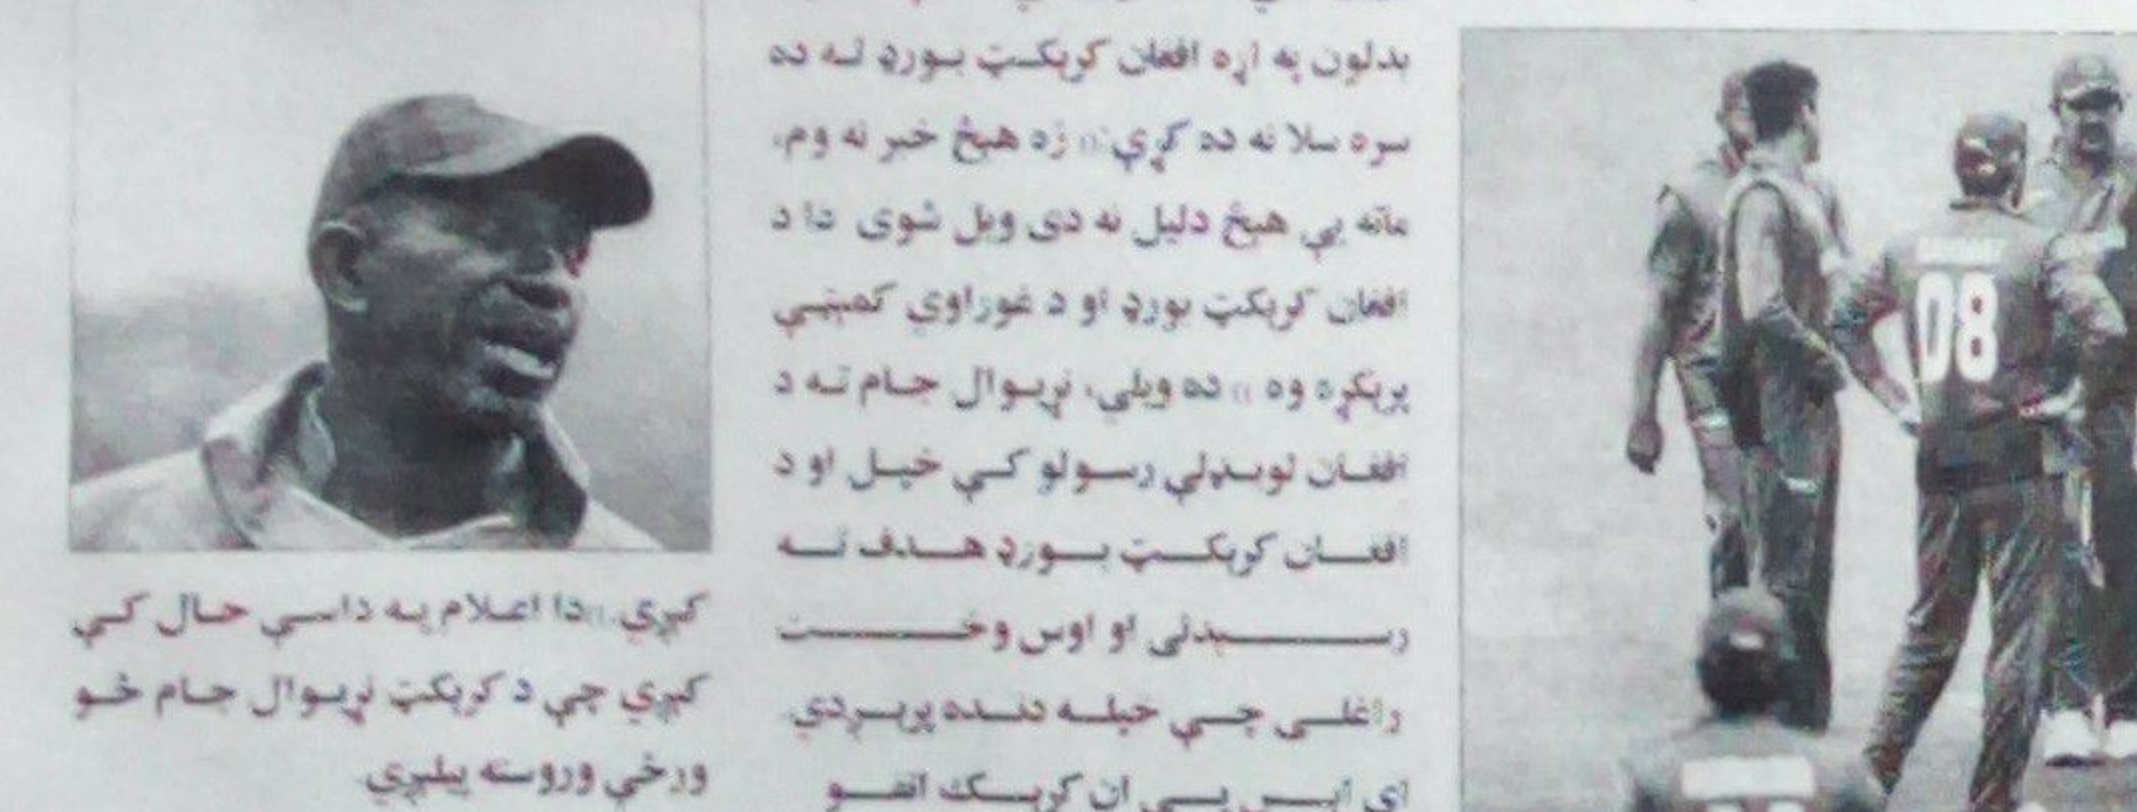 بدلون په اړه افغان کرېکټ بورډ له ده
سره سلا نه ده کړې:« زه هېڅ خبر نه وم،
ماته يې هېڅ دليل نه دی ويل شوی دا د
افغان کرېکټ بورډ او د غوراوي کمېټې
پرېکړه وه » ده ويلي، نړېوال جام ته د
افغان لوبډلې رسولو کې خپل او د
افغان کرېکټ بورډ هدف ته
رسېدلی او اوس وخت
راغلی چې خپله دنده پرېږدي
ای اېس پي ان کرېک انفو
کېږي.»دا اعلام په داسې حال کې
کېږي چې د کرېکټ نړېوال جام څو
ورځې وروسته پيلېږي
08